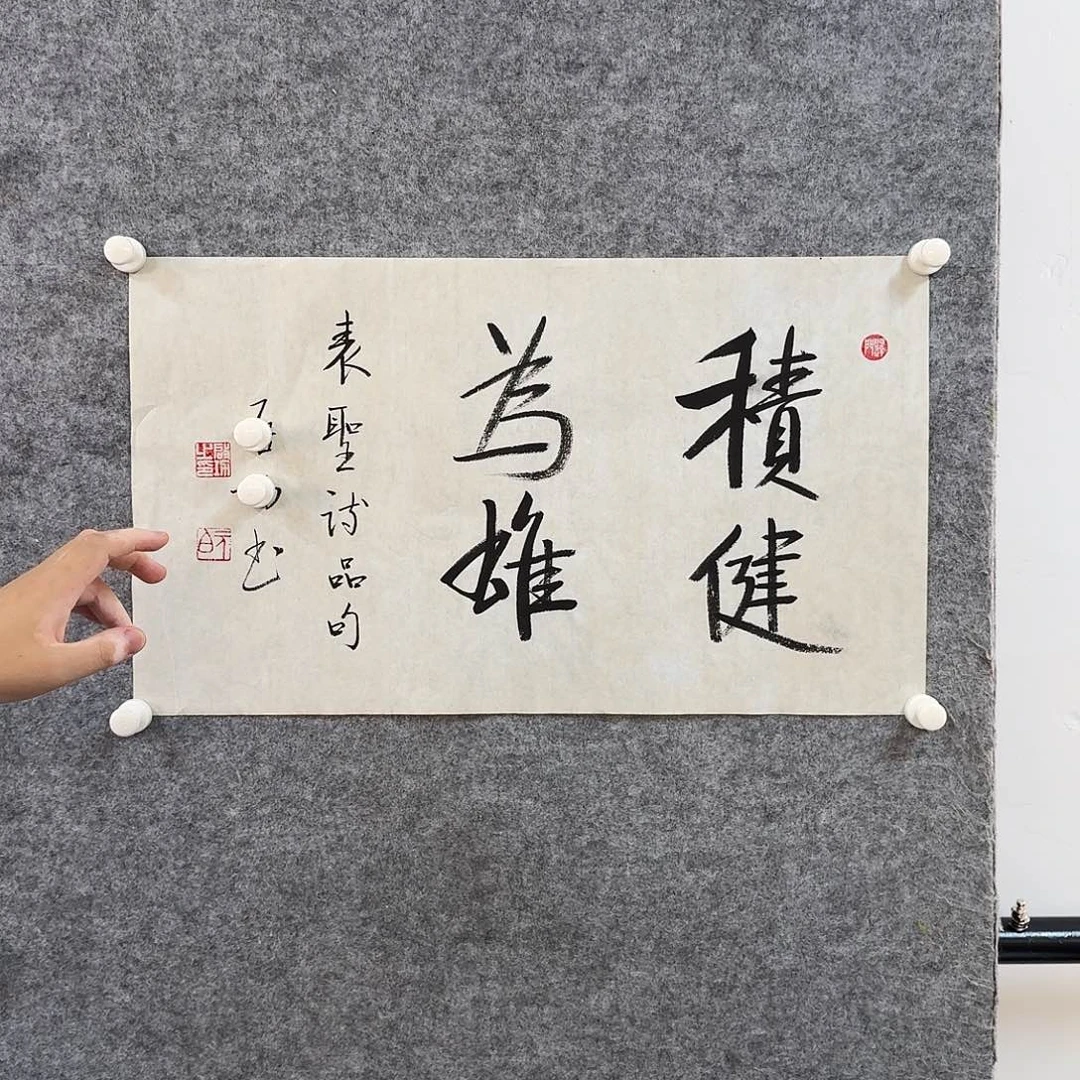 積健
為雄
表聖詩品句
书